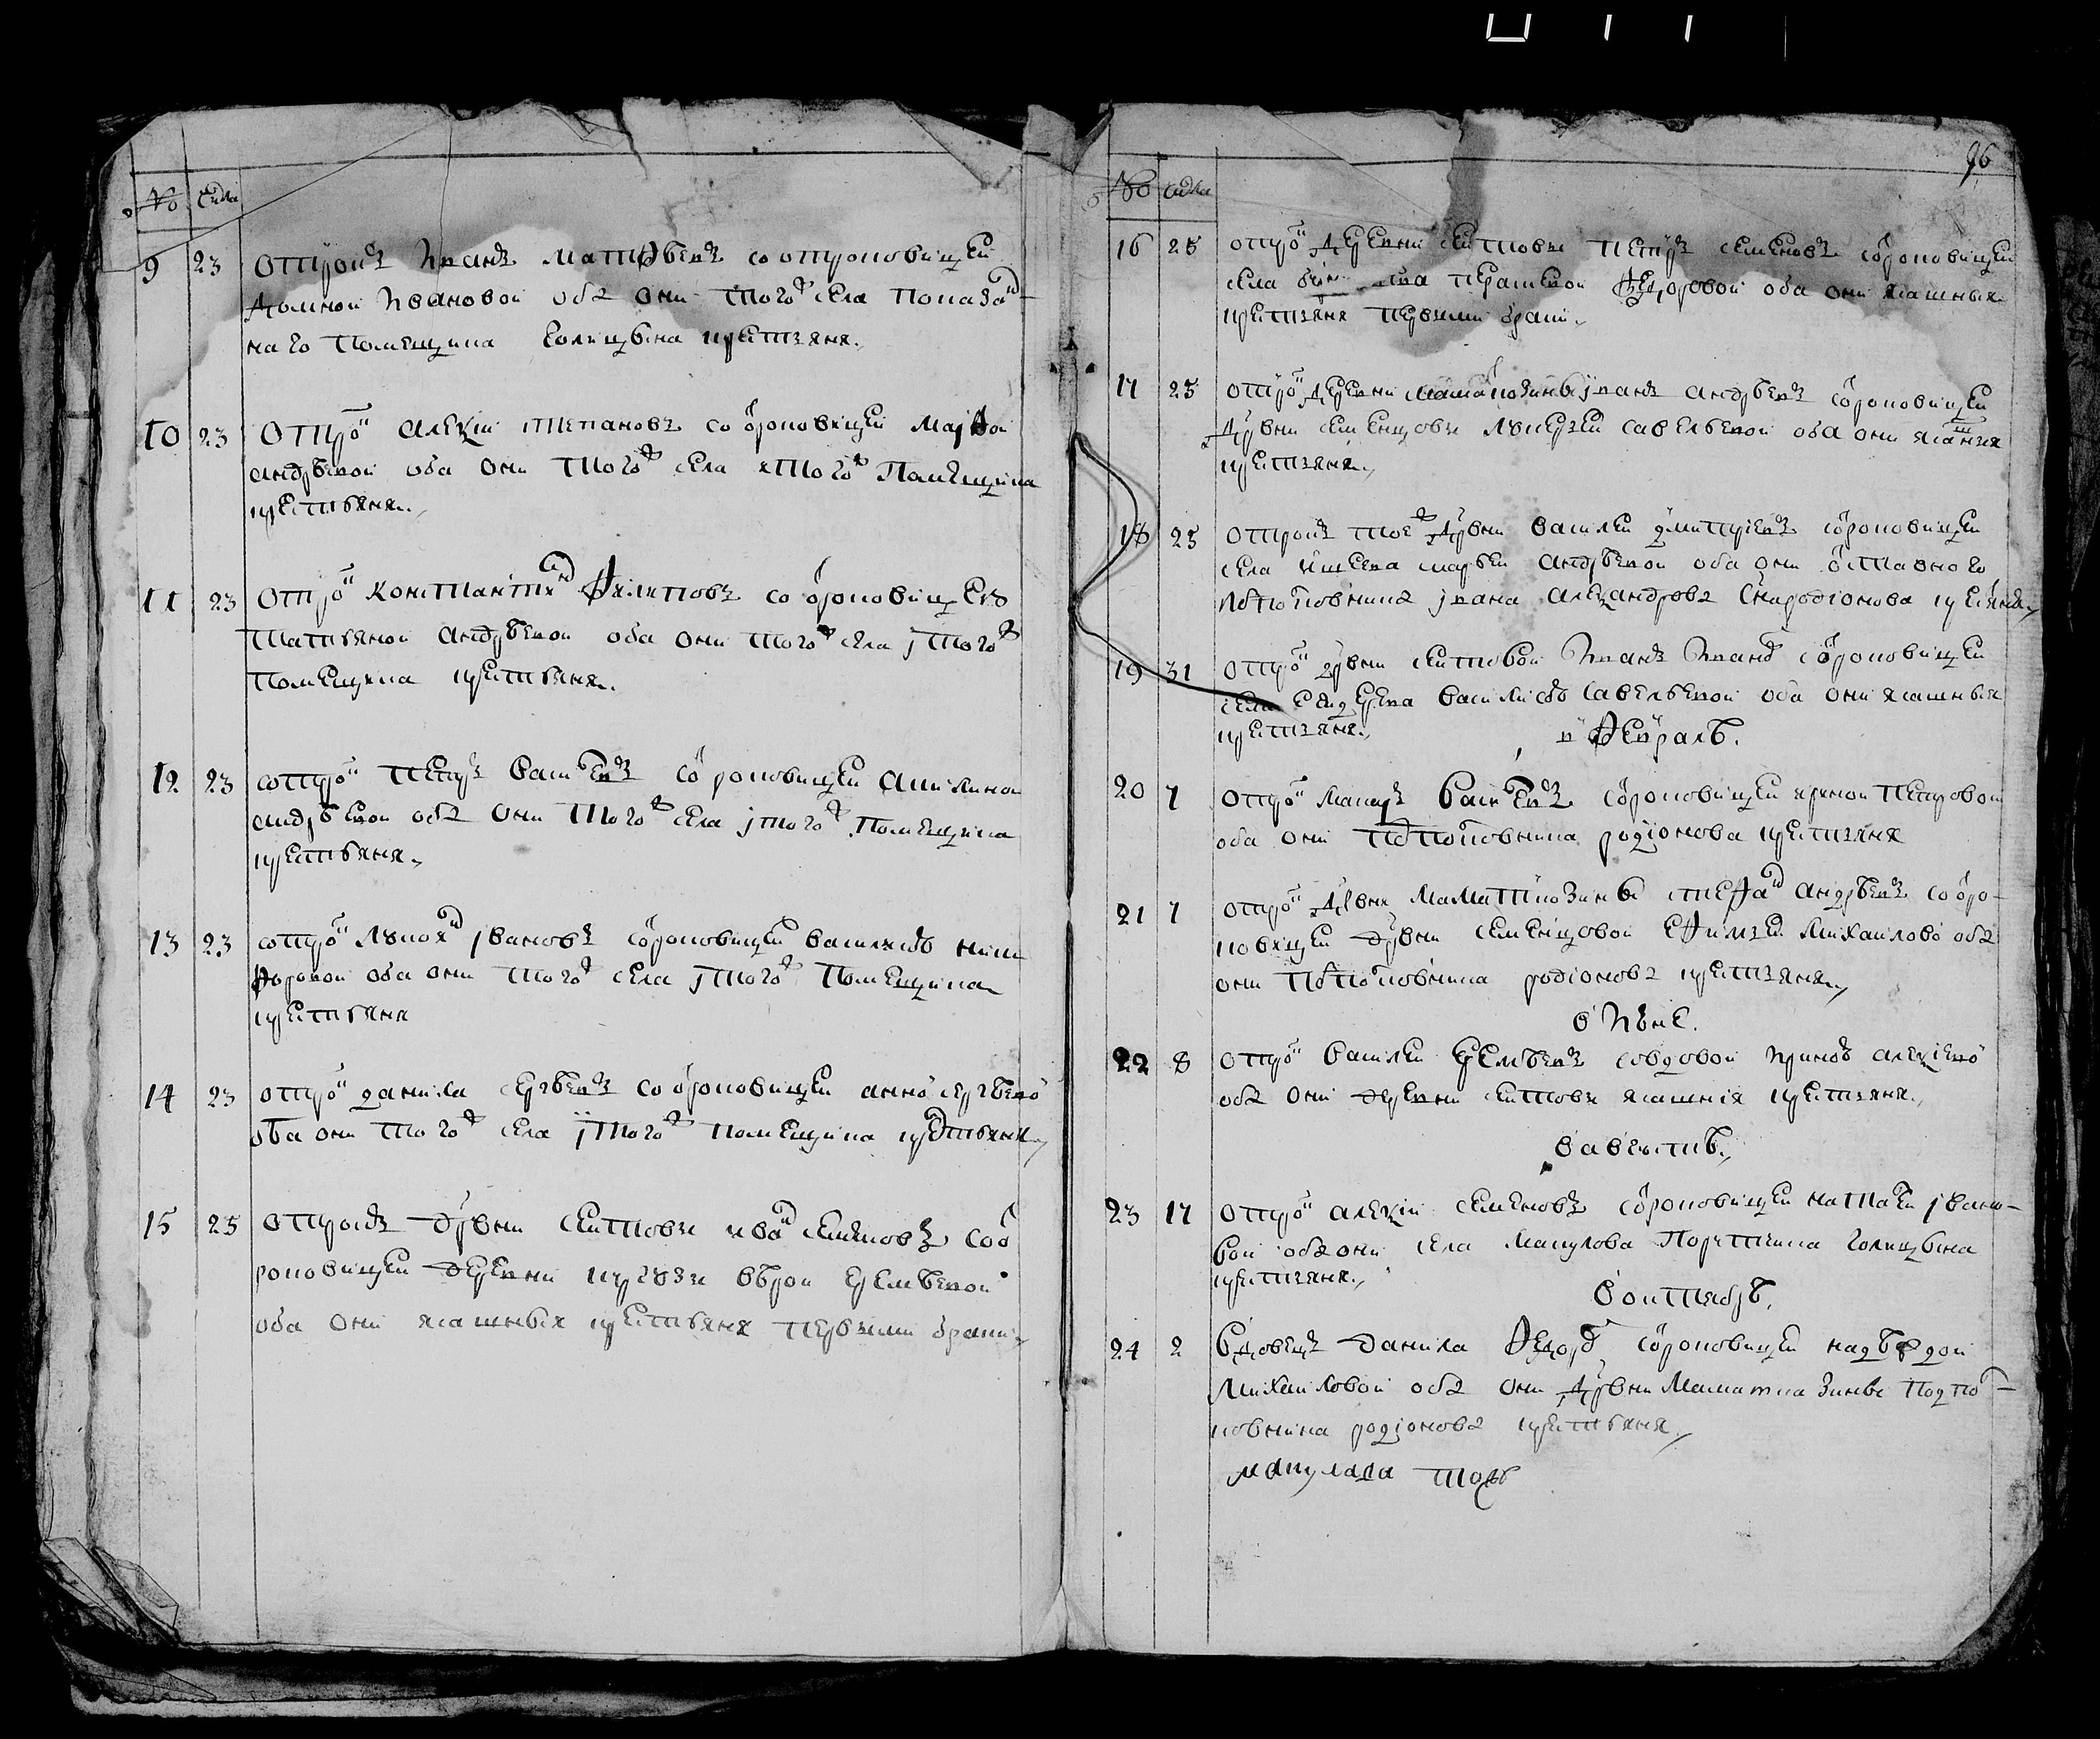 № Числа
9 23 отрокъ Иванъ Матфѣевъ со отроковицей
Домной Ивановой оба они того ж села показан-
наго помещика Голицына крестьяня.
10 23 отрок алексѣй степановъ со отроковицей Марфой
андрѣевой оба они того ж села и того ж помещика
крестьяня.
11 23 отрок констант Филиповъ со отроковицею
татьяной андрѣевой оба они того ж села і того ж
помещика крестьяня.
12 23 отрок петръ васильевъ со отроковицей акилиной
андрѣевой оба они того ж села і того ж помещика
крестьяня.
13 23 отрок лукоян івановъ со отроковицей василисой ники
форовой оба они того ж села і того ж помещика
крестьяня
14 23 отрок данила сергѣевъ со отроковицей анной сергѣевой
оба они того ж села і того ж помещика крестьяня
15 25 отрокъ дрвни сеитовы иван семеновъ со от
роковицей деревни вѣрой емельевой
оба они ясашныя крестьяня первыми браки
96
№ Числа
16 25 отрок деревни сеитовы петръ семеновъ с отроковицей
села Федоровой оба они ясашныя
крестьяня первыми браки
17 25 отрок деревни маматкозины іванъ андрѣевъ с отроковицей
дрвни семенцовы лукерьей савельевой оба они ясашныя
крестьяня
18 25 отрокъ тое ж дрвни василей дмитріевъ с отроковицей
села марьей андрѣевой оба они отставного
подполковника івана александрова сына родіонова крестьяня
19 31 отрок дрвни сеитовой Иванъ Иванов с отроковицей
села василисой савельевой оба они ясашныя
крестьяня.
в Февралѣ.
20 7 отрок Макаръ васильевъ с отроковицей ириной петровой
оба они подполковника родіонова крестьяня
21 7 отрок дрвни Маматкозины стефан андрѣевъ со отро-
ковицей дрвни семенцовой ефимьей михайловой оба
они подполковника родіонова крестьяня
в Июне.
22 8 отрок василей емельевъ со вдовой ириной алексѣевой
оба они деревни сеитовы ясашнія крестьяня
в августѣ.
23 17 отрок алексѣй семеновъ с отроковицей наталей івано-
вой оба они села Макулова порутчика голицына
крестьяня
в октябрѣ.
24 2 вдовецъ данила Федоров с отроковицей надѣждой
михайловой оба они дрвни Маматказины подпол-
ковника родіонова крестьяня
макулава тожъ